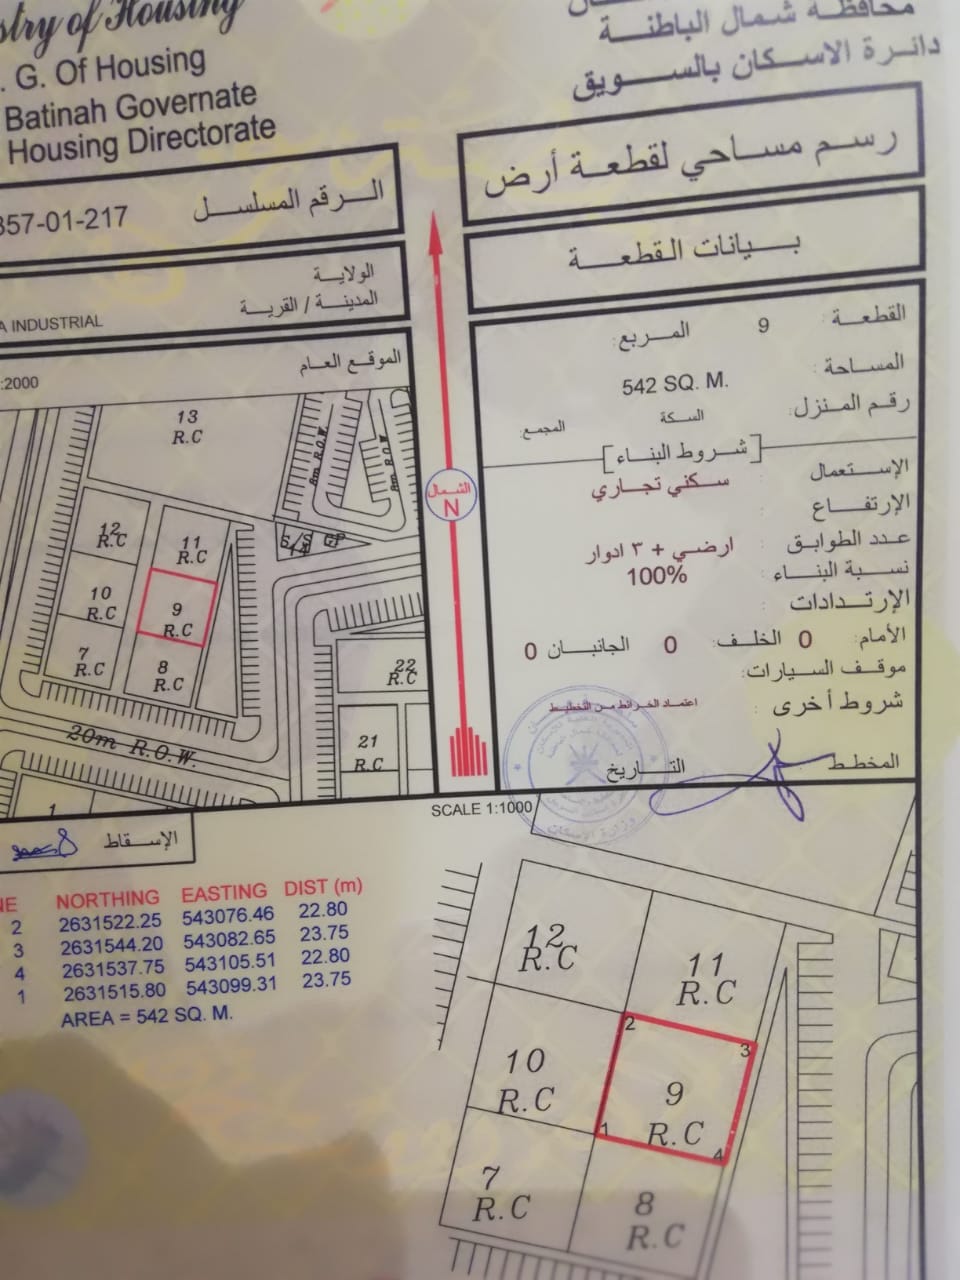 Ministry of Housing
. G. Of Housing
Batinah Governate
Housing Directorate
محافظة شمال الباطنة
دائرة الاسكان بالسويق
357-01-217 الرقم المسلسل
الولاية
المدينة / القرية
INDUSTRIAL
الموقع العام
:2000
13
R.C
8m R.O.W
8m R.O.W
12
R.C
11
R.C
S/S
10
R.C
9
R.C
7
R.C
8
R.C
22
R.C
21
R.C
20m R.O.W.
1
الشمال
N
رسم مساحي لقطعة أرض
بيانات القطعة
القطعة : 9 المربع:
المساحة : 542 SQ. M.
رقم المنزل: السكة المجمع:
[شروط البناء]
الإستعمال : سكني تجاري
الإرتفاع :
عدد الطوابق : ارضي + ٣ ادوار
نسبة البناء : 100%
الإرتدادات :
الأمام: 0 الخلف: 0 الجانبان 0
موقف السيارات:
شروط أخرى : اعتماد الخرائط من التخطيط
المخطط التاريخ
وزارة الاسكان
SCALE 1:1000
الإسقاط
NE NORTHING EASTING DIST (m)
2 2631522.25 543076.46 22.80
3 2631544.20 543082.65 23.75
4 2631537.75 543105.51 22.80
1 2631515.80 543099.31 23.75
AREA = 542 SQ. M.
12
R.C
11
R.C
2
3
10
R.C
9
R.C
1
4
7
R.C
8
R.C